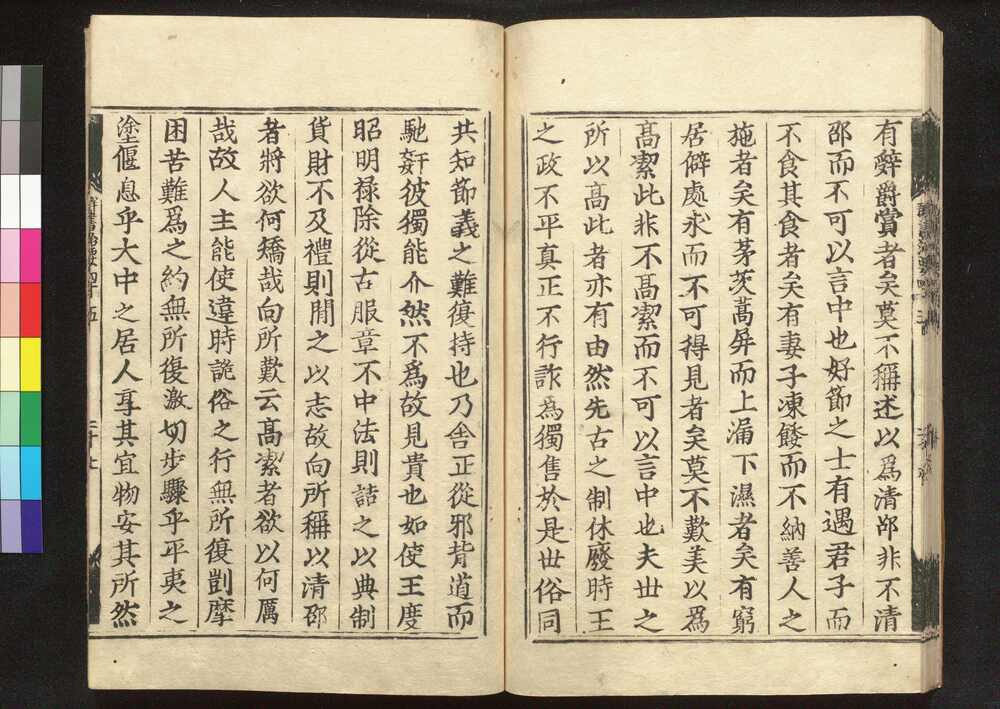 有辭爵賞者矣莫不稱述以爲清邵非不清
邵而不可以言中也好節之士有遇君子而
不食其食者矣有妻子凍餒而不納善人之
施者矣有茅茨蒿屏而上漏下濕者矣有窮
居僻處求而不可得見者矣莫不歎美以爲
髙潔此非不髙潔而不可以言中也夫世之
所以髙此者亦有由然先古之制休廢時王
之政不平真正不行詐爲獨售於是世俗同
共知節義之難復持也乃舍正從邪背道而
馳姧彼獨能介然不爲故見貴也如使王度
昭明禄除從古服章不中法則詰之以典制
貨財不及禮則間之以志故向所稱以清邵
者將欲何矯哉向所歎云髙潔者欲以何厲
哉故人主能使違時詭俗之行無所復剴摩
困苦難爲之約無所復激切步驟乎平夷之
塗偃息乎大中之居人享其宜物安其所然
群書治要四十五
二十七